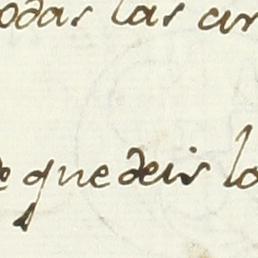 odas las ar
e quedeis lo